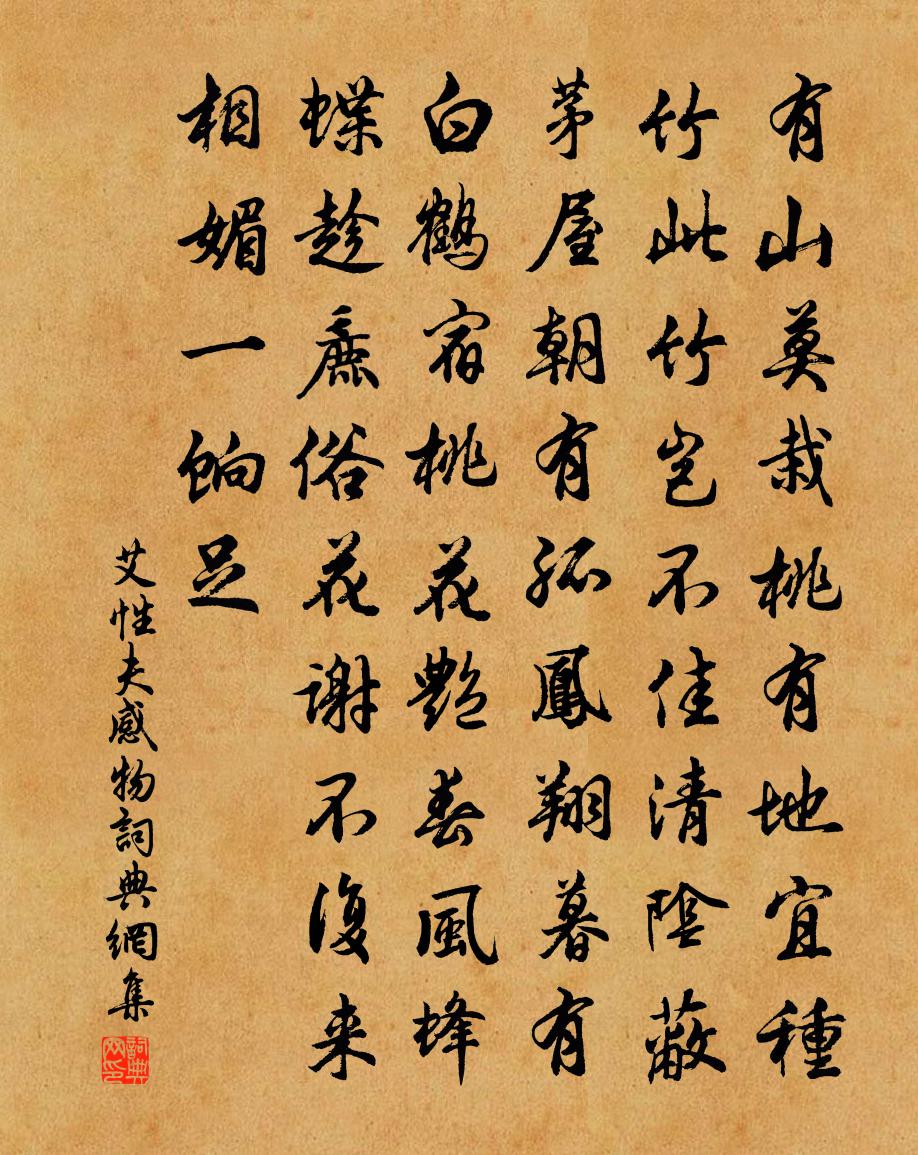 有山莫栽桃有地宜種
竹此竹豈不佳清陰蔽
茅屋朝有孤鳳翔暮有
白鶴宿桃花艷春風蜂
蝶趁麃俗花謝不復来
相媚一餉足
艾性夫感物詞典網集
詞典網印